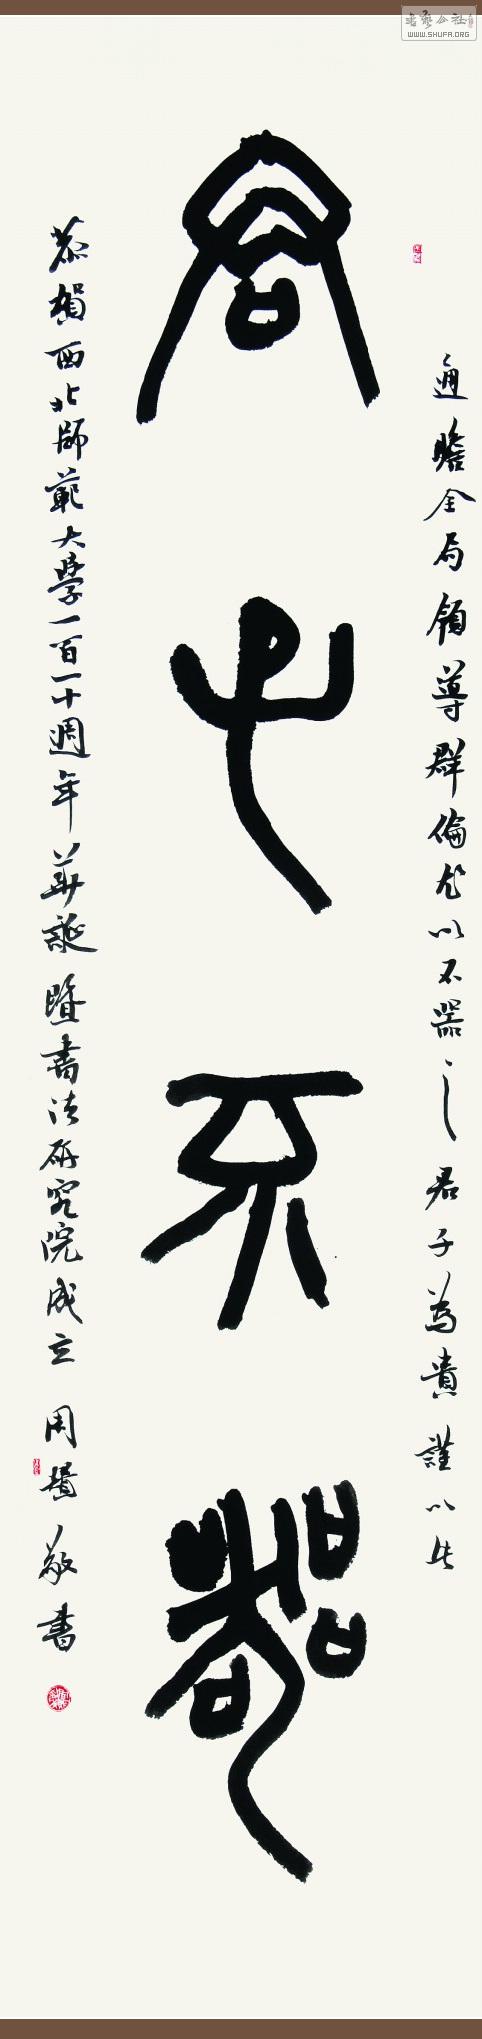 通瞻全局領導群倫尤以不器之君子為貴謹以此
君子不器
恭賀西北師範大學一百一十週年華誕暨書法研究院成立 周 敬書
書藝公社
WWW.SHUFA.ORG